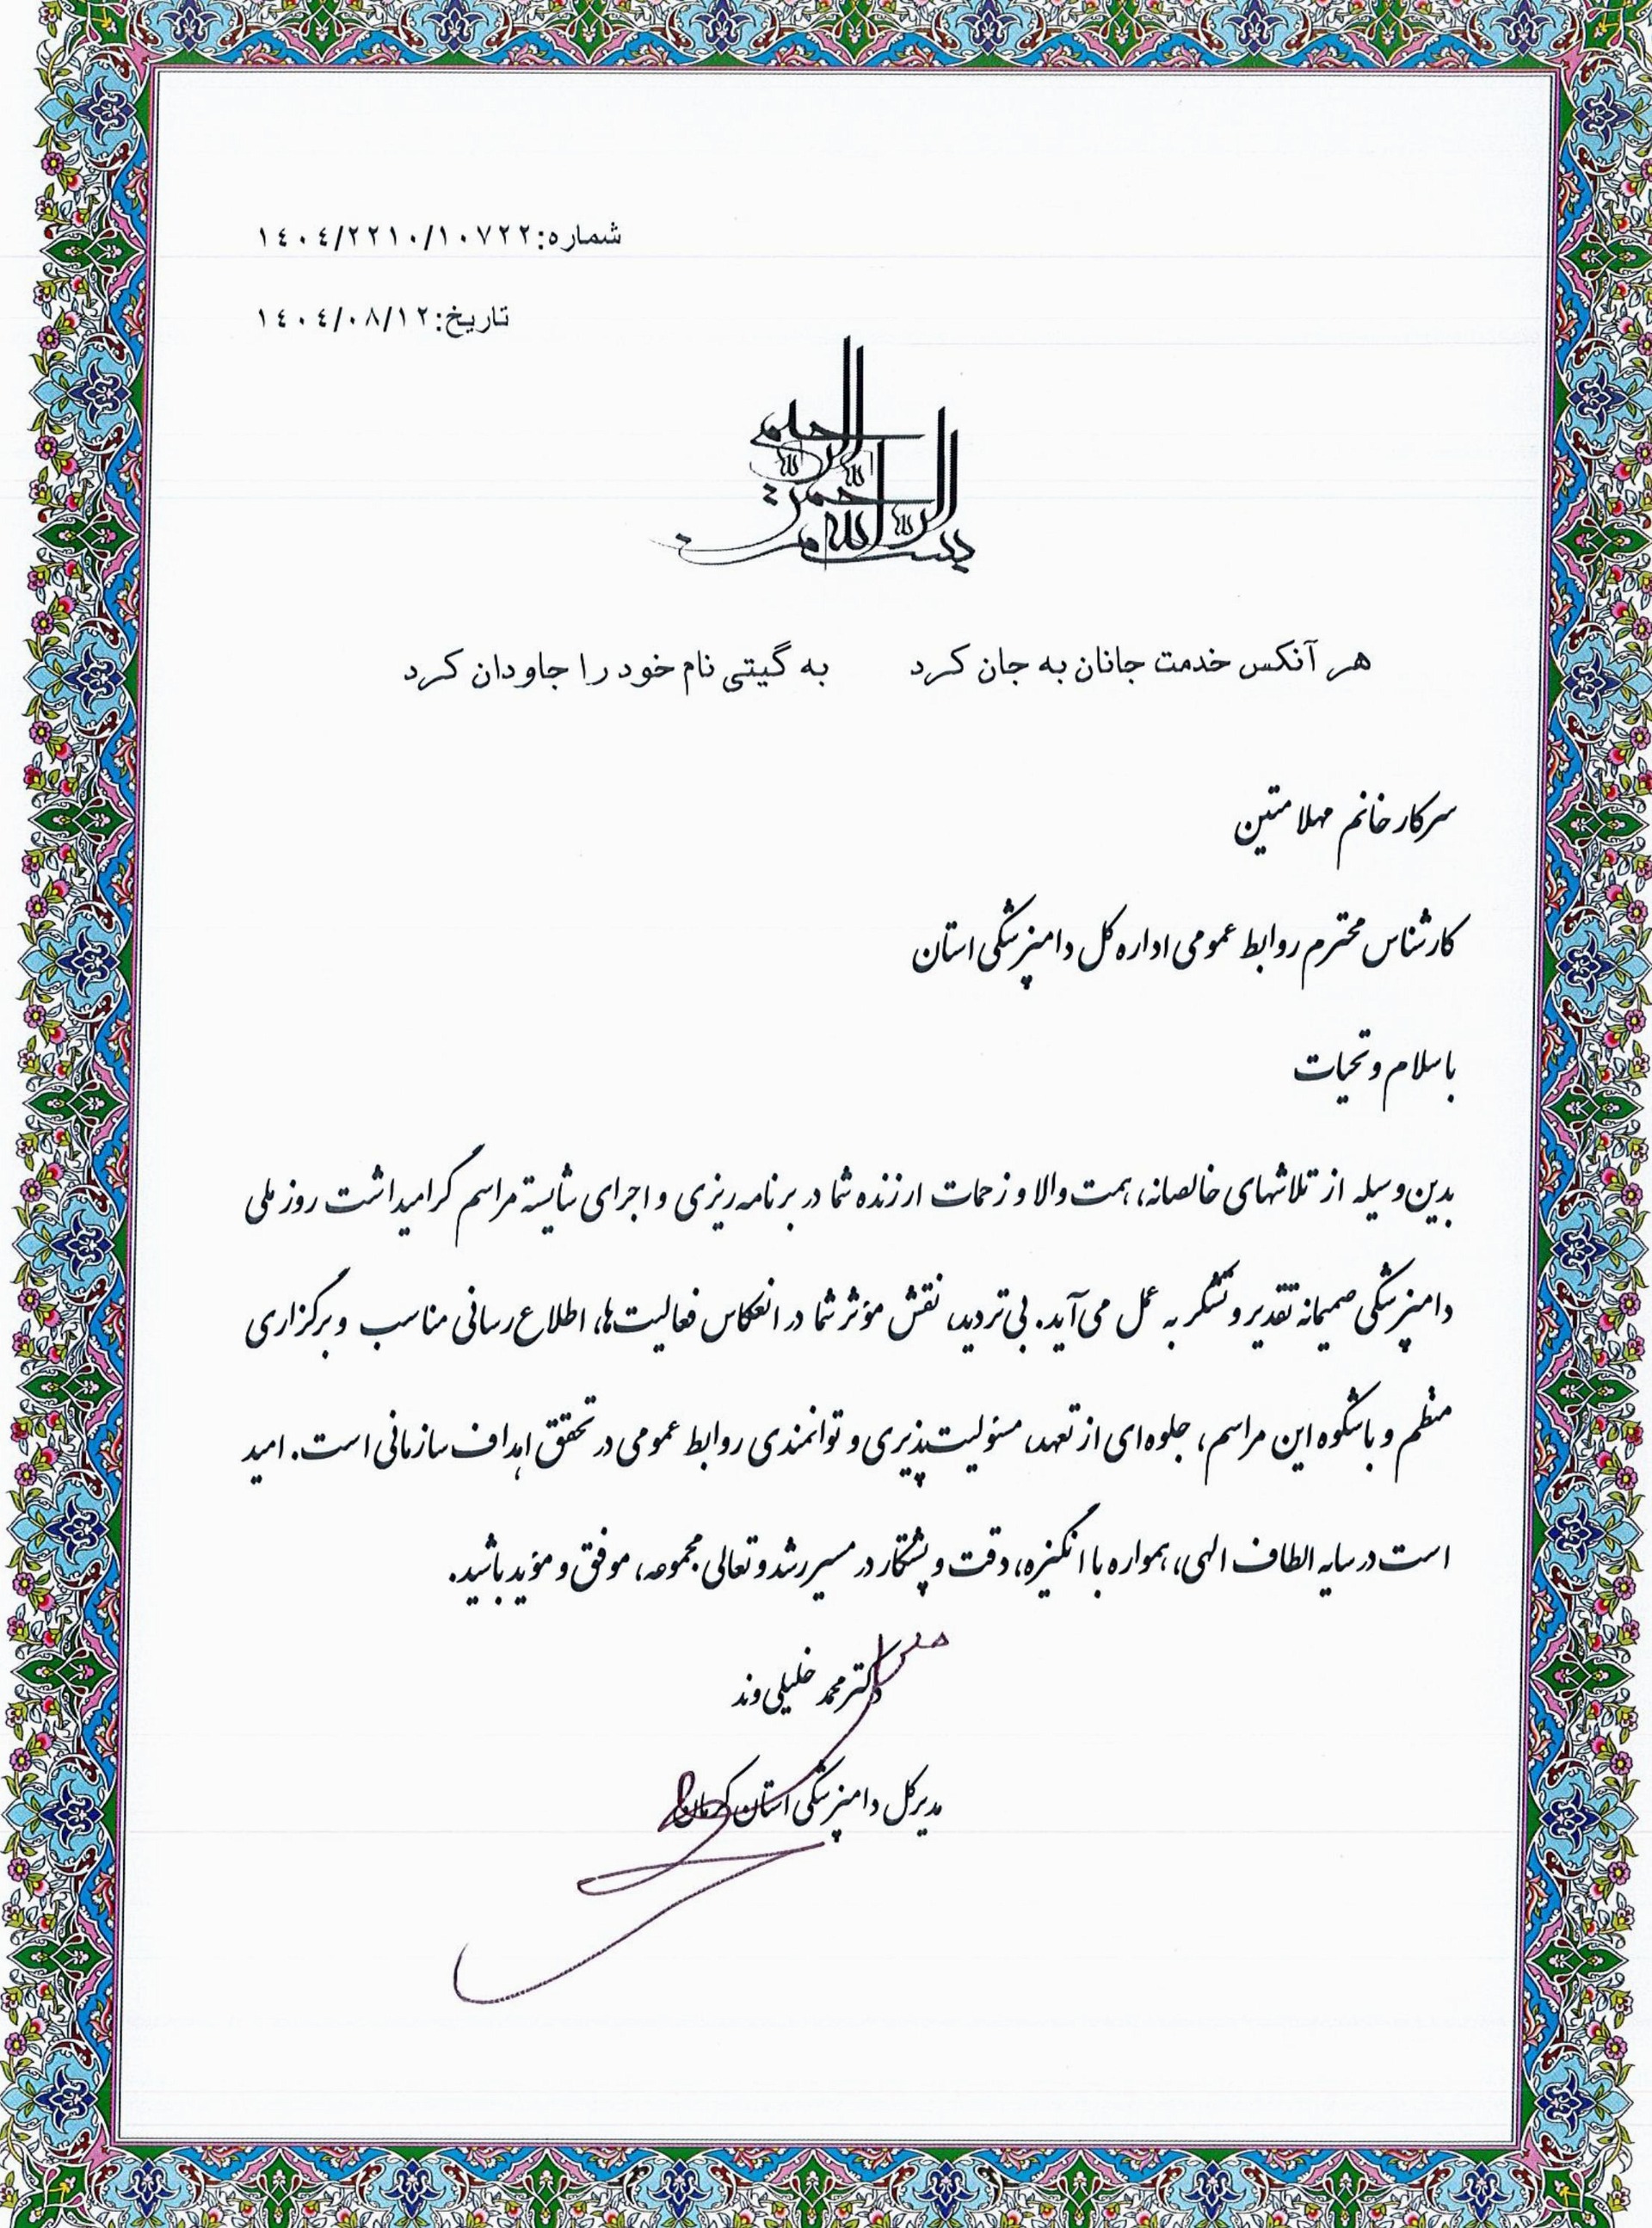 شماره:۱۴۰۴/۲۲۱۰/۱۰۷۲۲
تاریخ:۱۴۰۴/۰۸/۱۲
بسم الله الرحمن الرحیم
هر آنکس خدمت جانان به جان کرد به گیتی نام خود را جاودان کرد
سرکار خانم مهلا متین
کارشناس محترم روابط عمومی اداره کل دامپزشکی استان
با سلام و تحیات
بدین وسیله از تلاشهای خالصانه، همت والا و زحمات ارزنده شما در برنامه ریزی و اجرای شایسته مراسم گرامیداشت روز ملی
دامپزشکی صمیمانه تقدیر و تشکر به عمل می‌آید. بی‌تردید، نقش مؤثر شما در انعکاس فعالیت‌ها، اطلاع رسانی مناسب و برگزاری
منظم و باشکوه این مراسم، جلوه‌ای از تعهد، مسئولیت‌پذیری و توانمندی روابط عمومی در تحقق اهداف سازمانی است. امید
است در سایه الطاف الهی، همواره با انگیزه، دقت و پشتکار در مسیر رشد و تعالی مجموعه، موفق و مؤید باشید.
دکتر محمد خلیلی وند
مدیرکل دامپزشکی استان کرمان